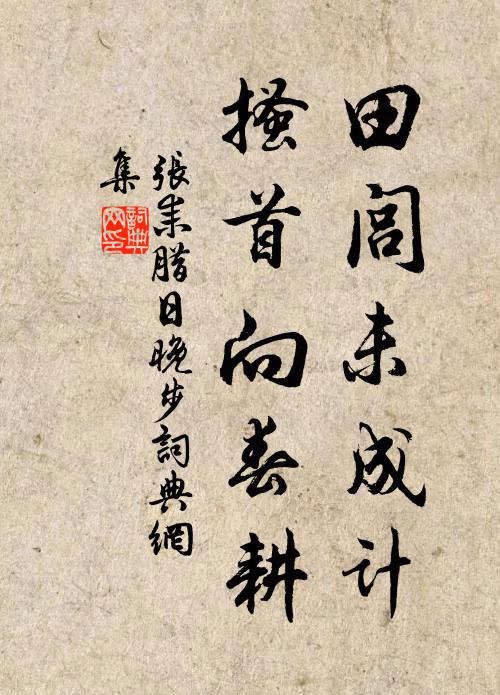 田閭未成計
搔首向春耕
張耒腊日晚步詞典網
集
詞典
网印